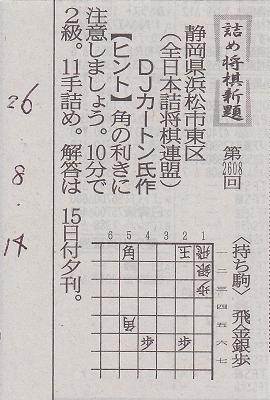 詰め将棋新題
第2608回
静岡県浜松市東区
(全日本詰将棋連盟)
DJカートン氏作
【ヒント】角の利きに
注意しましょう。10分で
2級。11手詰め。解答は
15日付夕刊。
〈持ち駒〉飛金銀歩
6 5 4 3 2 1
角 王 飛 一
銀 二
歩 三
四
角 五
歩 歩 六
七
26
8.
14